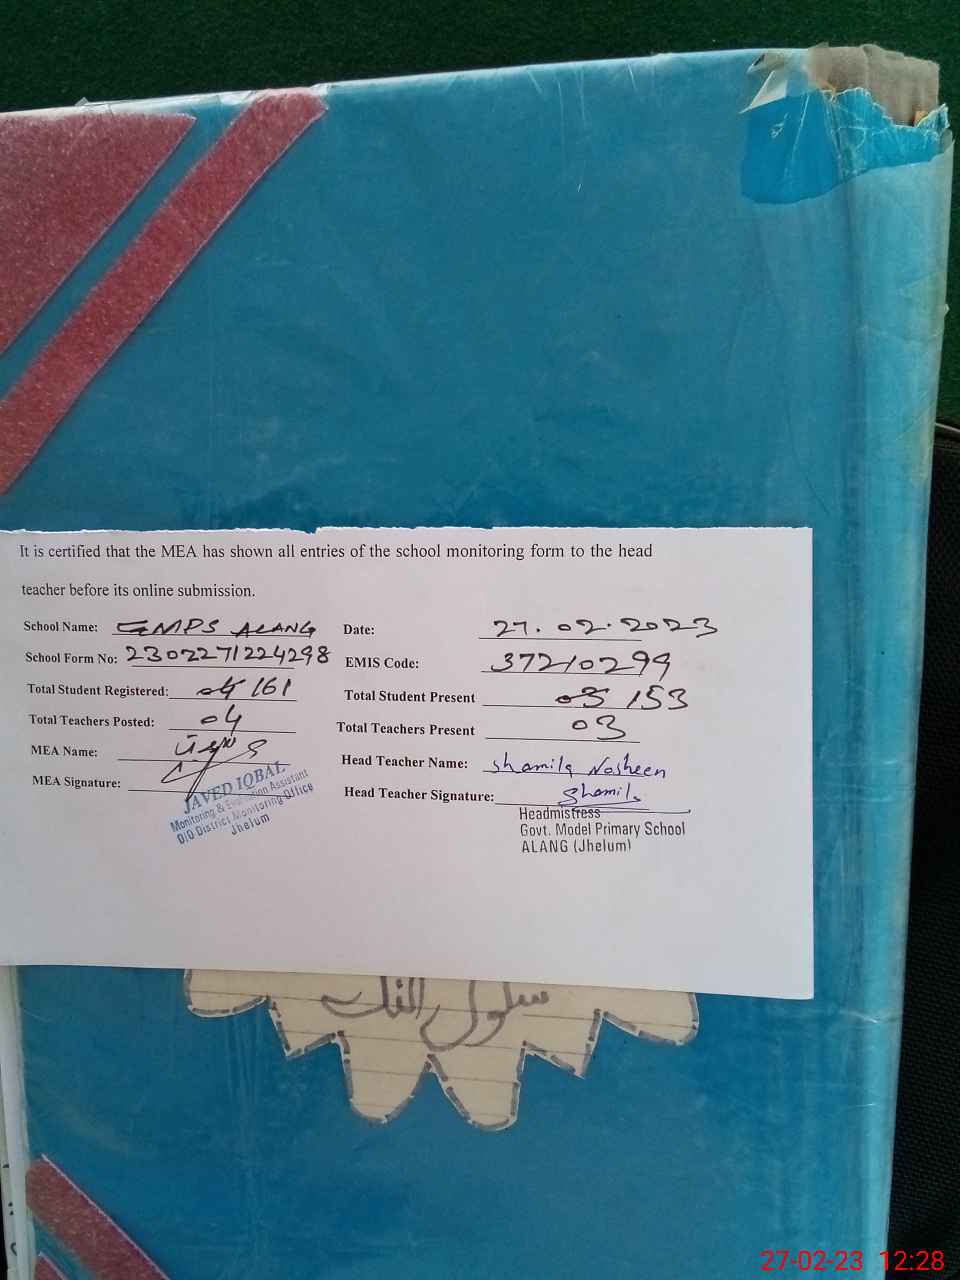 It is certified that the MEA has shown all entries of the school monitoring form to the head
teacher before its online submission.
School Name: GMPS ALANG Date: 27.02.2023
School Form No: 2302271224298 EMIS Code: 37210299
Total Student Registered: 161 Total Student Present 153
Total Teachers Posted: 04 Total Teachers Present 03
MEA Name: Head Teacher Name: Shamila Nosheen
MEA Signature: Head Teacher Signature: Shamila
JAVED IQBAL
Monitoring & Evaluation Assistant
O/O District Monitoring Office
Jhelum
Headmistress
Govt. Model Primary School
ALANG (Jhelum)
27-02-23 12:28